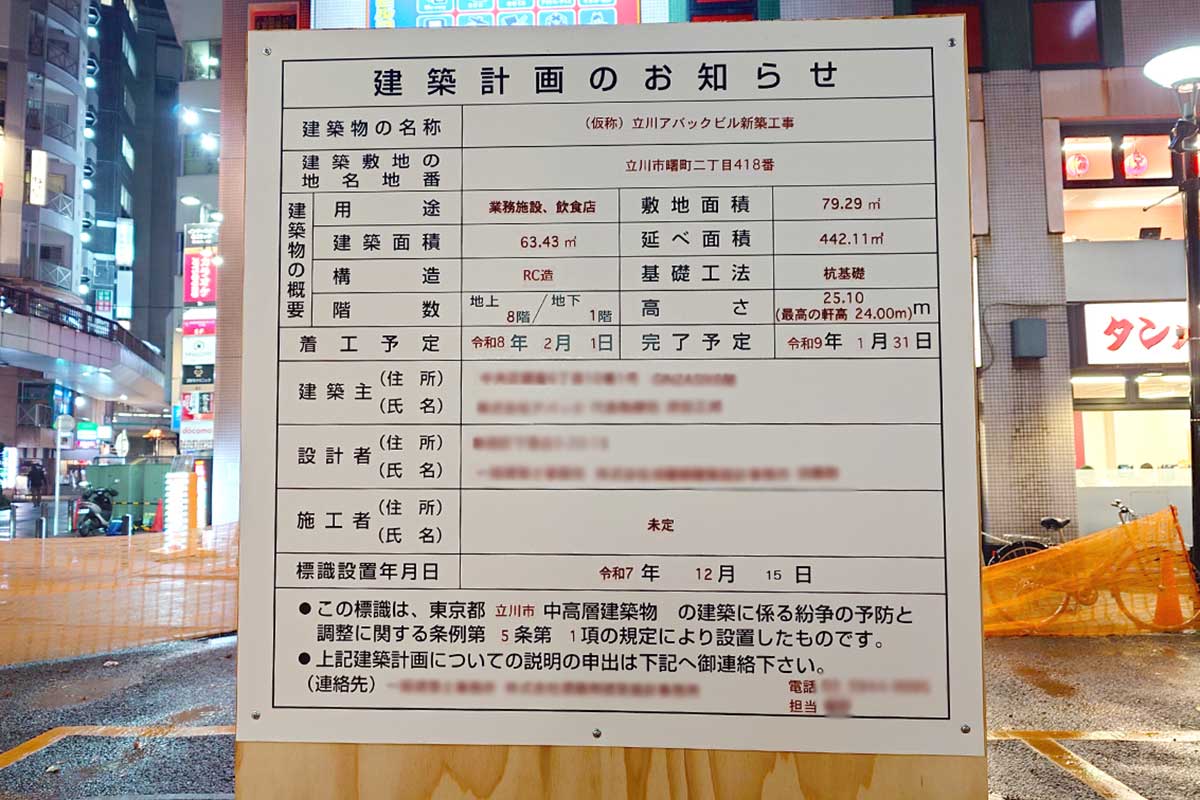 建築計画のお知らせ
建築物の名称 (仮称)立川アバックビル新築工事
建築敷地の地名地番 立川市曙町二丁目418番
建築物の概要
用途 業務施設、飲食店 敷地面積 79.29 ㎡
建築面積 63.43 ㎡ 延べ面積 442.11㎡
構造 RC造 基礎工法 杭基礎
階数 地上 8階/地下 1階 高さ 25.10 (最高の軒高 24.00m)m
着工予定 令和8年 2月 1日 完了予定 令和9年 1月31日
建築主 (住所)
(氏名)
設計者 (住所)
(氏名)
施工者 (住所)
(氏名) 未定
標識設置年月日 令和7年 12月 15日
●この標識は、東京都 立川市 中高層建築物 の建築に係る紛争の予防と
調整に関する条例第 5条第 1項の規定により設置したものです。
●上記建築計画についての説明の申出は下記へ御連絡下さい。
(連絡先) 電話
担当
タン
カラオケ
docomo